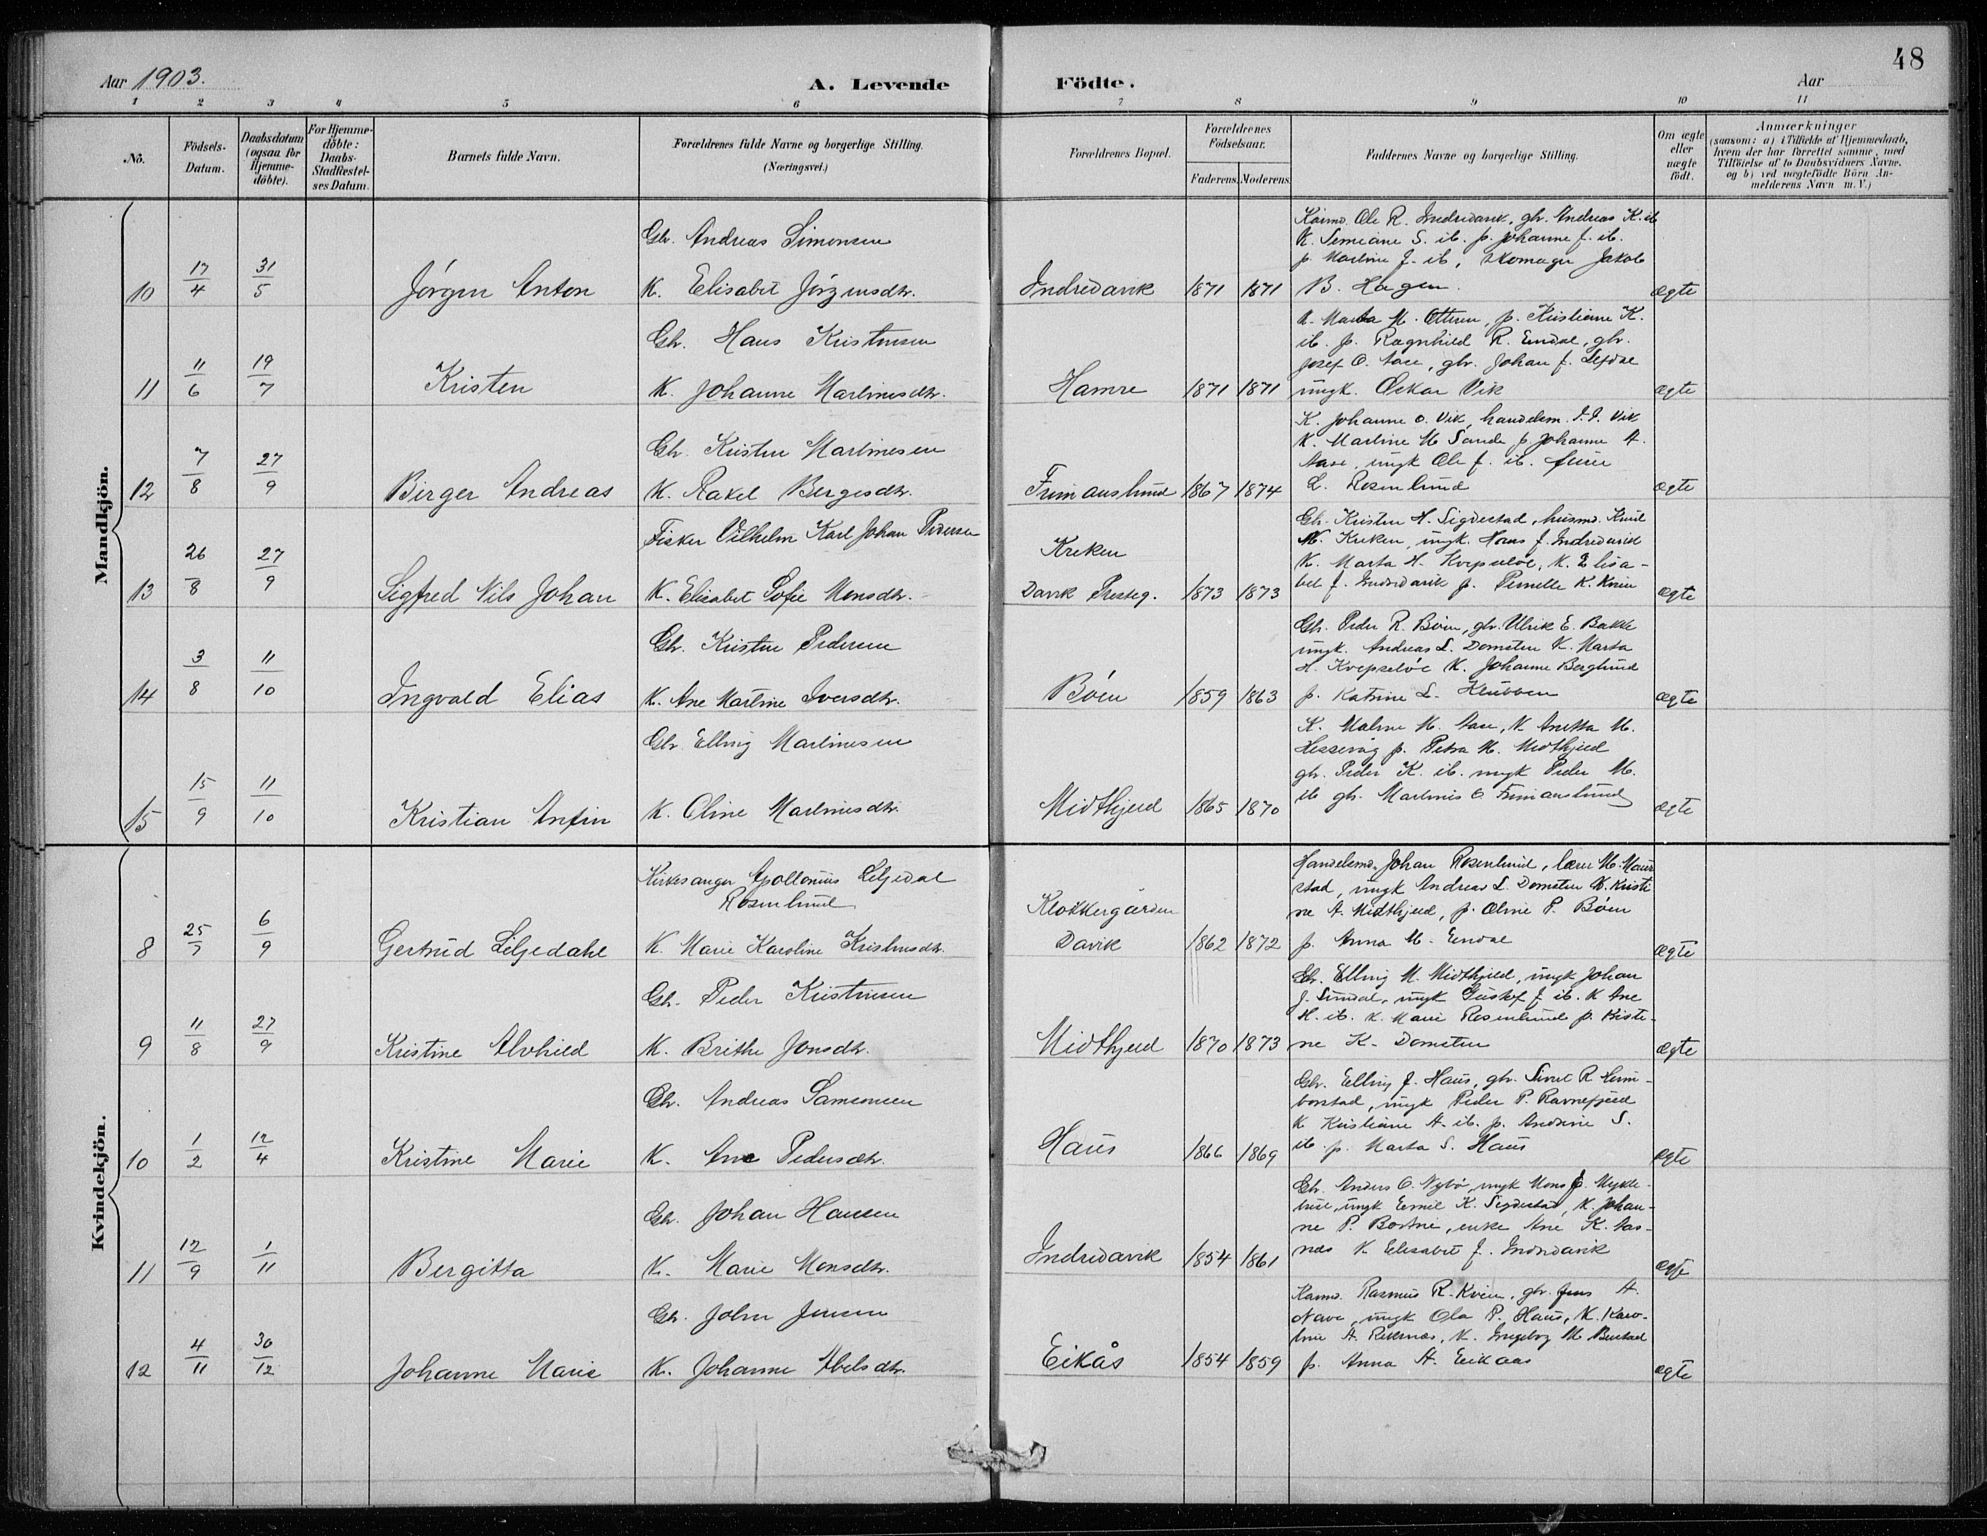 48
Aar 1903.
A. Levende Födte.
Aar
1 2 3 4 5 6 7 8 9 10 11
No.
Födsels-Datum.
Daabsdatum (ogsaa for Hjemme-döbte).
For Hjemme-döbte: Daabs-Stadfæstel-ses Datum.
Barnets fulde Navn.
Forældrenes fulde Navne og borgerlige Stilling.
(Næringsvei.)
Forældrenes Bopæl.
Forældrenes Födselsaar.
Faderens. Moderens.
Faddernes Navne og borgerlige Stilling.
Om ægte eller uægte födt.
Anmærkninger
(saasom: a) i Tilfælde af Hjemmedaab,
hvem der har forrettet samme, med
Tilföielse af to Daabsvidners Navne.
og b) ved uægtefödte Börn An-
melderens Navn m. V.)
Mandkjön.
10 17/4 31/5 Jørgen Anton
Gbr. Andreas Simonsen
K. Elisabet Jørgensdtr.
Indredavik 1871 1871
Kaarmd. Ole R. Indredavik, gbr. Andreas K. ib
K. Semine S. ib. p. Johanne J. ib.
p. Martine J. ib, Skomager Jakob
B. Hagen.
ægte
11 11/6 19/7 Kristen
Gbr. Hans Kristensen
K. Johanne Martinusdtr.
Hamre 1871 1871
K. Marta M. Otteren, p. Kristiane K.
ib. p. Ragnhild R. Endal, gbr.
Josef O. Aase, gbr. Johan J. Lefdal
ungk. Oskar Vik
ægte
12 7/8 27/9 Birger Andreas
Gbr. Kristen Martinesen
K. Rakel Bergesdtr.
Frimanslund 1867 1874
K. Johanne O. Vik, handelsm. I. I. Vik
K. Martine M Sande p Johanne A.
Aase, ungk Ole J. ib.
L. Rosenlund
ægte
13 26/8 27/9 Sigfred Nils Johan
Fisker Vilhelm Karl Johan Pedersen
K. Elisabet Sofie Monsdtr.
Kreken
Davik Presteg. 1873 1873
Gbr. Kristen H. Sigdestad, husmd. Knut
M. Kreken, ungk. Hans J. Indredavik
K. Marta H. Kvepseløe, K. Elisa-
bet J. Indredavik p. Pernille K.
ægte
14 3/8 11/10 Ingvald Elias
Gbr. Kristen Pedersen
K. Ane Martine Iversdtr.
Bøen 1859 1863
Gbr. Peder R. Bøen, gbr. Ulrik E. Bakke
ungk. Andreas L. Domsten K. Marta
H. Kvepseløe K. Johanne Berglund
p. Katrine L. Klubben
ægte
15 15/9 11/10 Kristian Anfin
Gbr Elling Martinesen
K. Oline Martinusdtr.
Midthjeld 1865 1870
K. Malene K. Aase, K Anetta M.
Hessevåg p. Petra M. Midthjeld
gbr. Peder K. ib. ungk Peder M.
ib gbr. Martinus O Frimanslund
ægte
Kvindekjön.
8 25/7 6/9 Gertrud Liljedahl
Kirkesanger Apollonius Liljedal
Rosenlund
K. Marie Karoline Kristensdtr.
Klokkergården
Davik 1862 1872
Handelsmd. Johan Rosenlund, lærer M. Maur-
stad, ungk Andreas L. Domsten K. Kristi-
ne A. Midthjeld, p. Oline P. Bøen
p. Anna M. Endal
ægte
9 11/8 27/9 Kristine Alvhild
Gbr. Peder Kristensen
K. Brithe Jonsdtr.
Midthjeld 1870 1873
Gbr. Elling M. Midthjeld, ungk Johan
J. Sundal, ungk Gustav J ib. K Ane
H. ib. K. Marie Rosenlund p. Kisti-
ne K. Domsten
ægte
10 1/2 12/4 Kristine Marie
Gbr. Andreas Samsonsen
K. Ane Pedersdtr.
Haus 1866 1869
Gbr. Elling J. Haus, gbr. Sivert R Hum-
borstad, ungk Peder P. Ravnefjeld
K Kristiane A. ib. p. Andrine S.
ib. p. Marta S. Haus
ægte
11 12/9 1/11 Bergitta
Gbr. Johan Hansen
K. Marie Monsdtr.
Indredavik 1854 1861
Gbr. Anders O. Nybø, ungk Mons P. Mykle-
bust, ungk Emil K. Sigdestad, K. Johan-
ne P. Bortne, enke Ane K. Aas-
næs K. Elisabet J. Indredavik
ægte
12 4/11 30/12 Johanne Marie
Gbr. John Jensen
K. Johanne Abelsdtr.
Eikås 1854 1859
Kaarmd. Rasmus R. Kvien, gbr. Jens A.
Nave, ungk Ola P. Haus, K. Karo-
line A. Reksnæs, K. Ingeborg M
p. Anna A. Eikaas
ægte